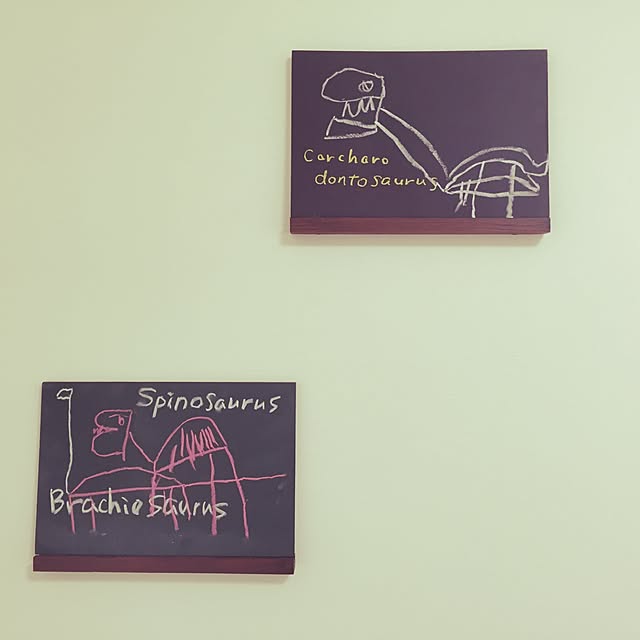 Carcharo
dontosaurus
Spinosaurus
Brachiosaurus